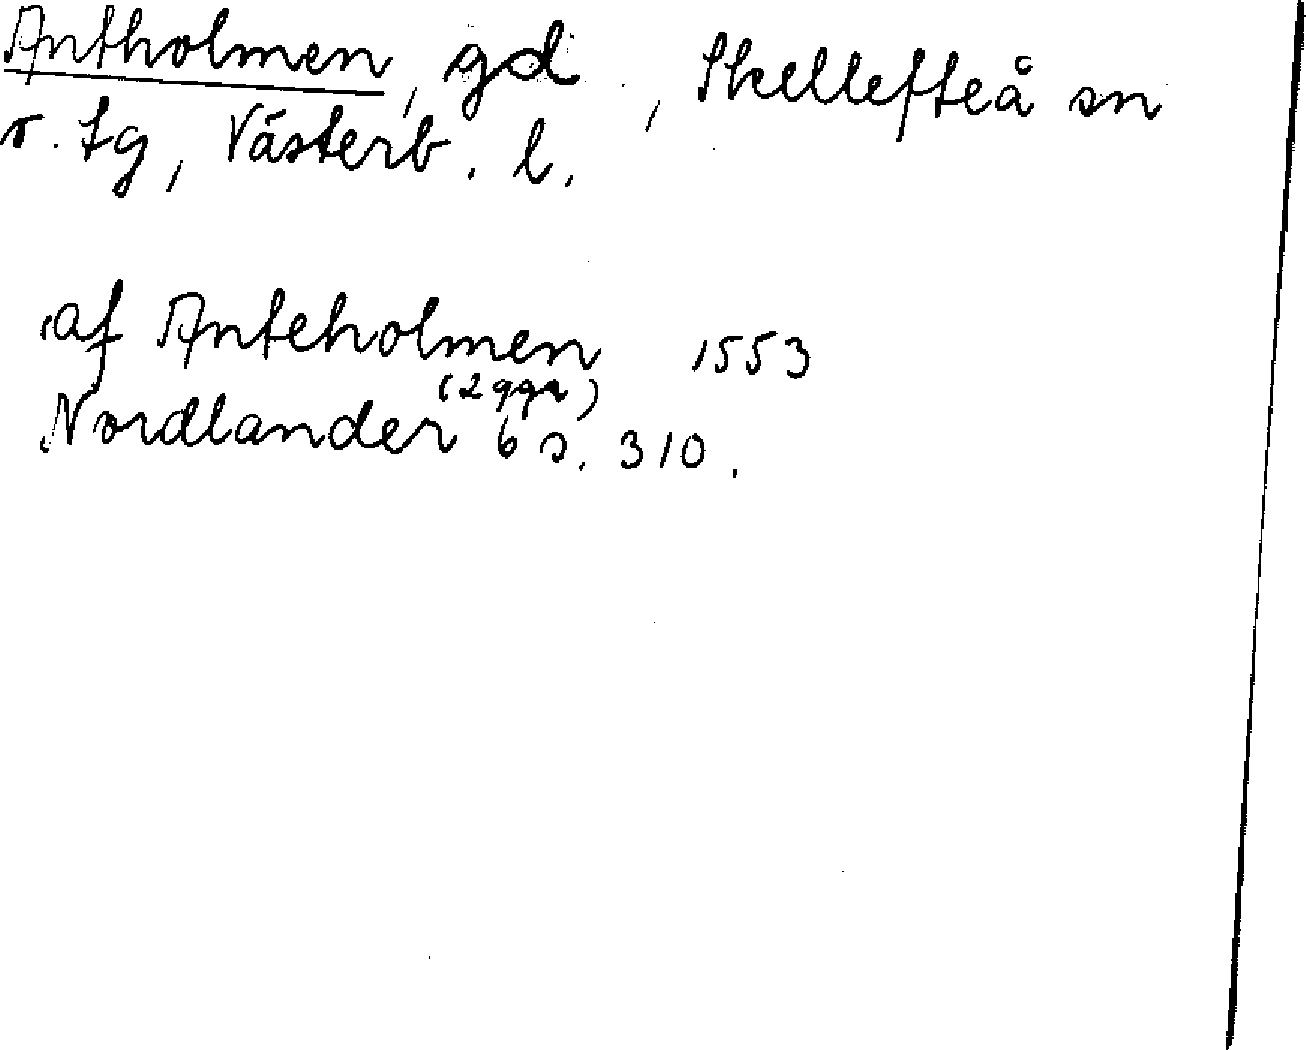 Antholmen, gd., Skellefteå sn
o. tg, Västerb. l.
af Anteholmen 1553
(2 ggr)
Nordlander 6 s. 310.